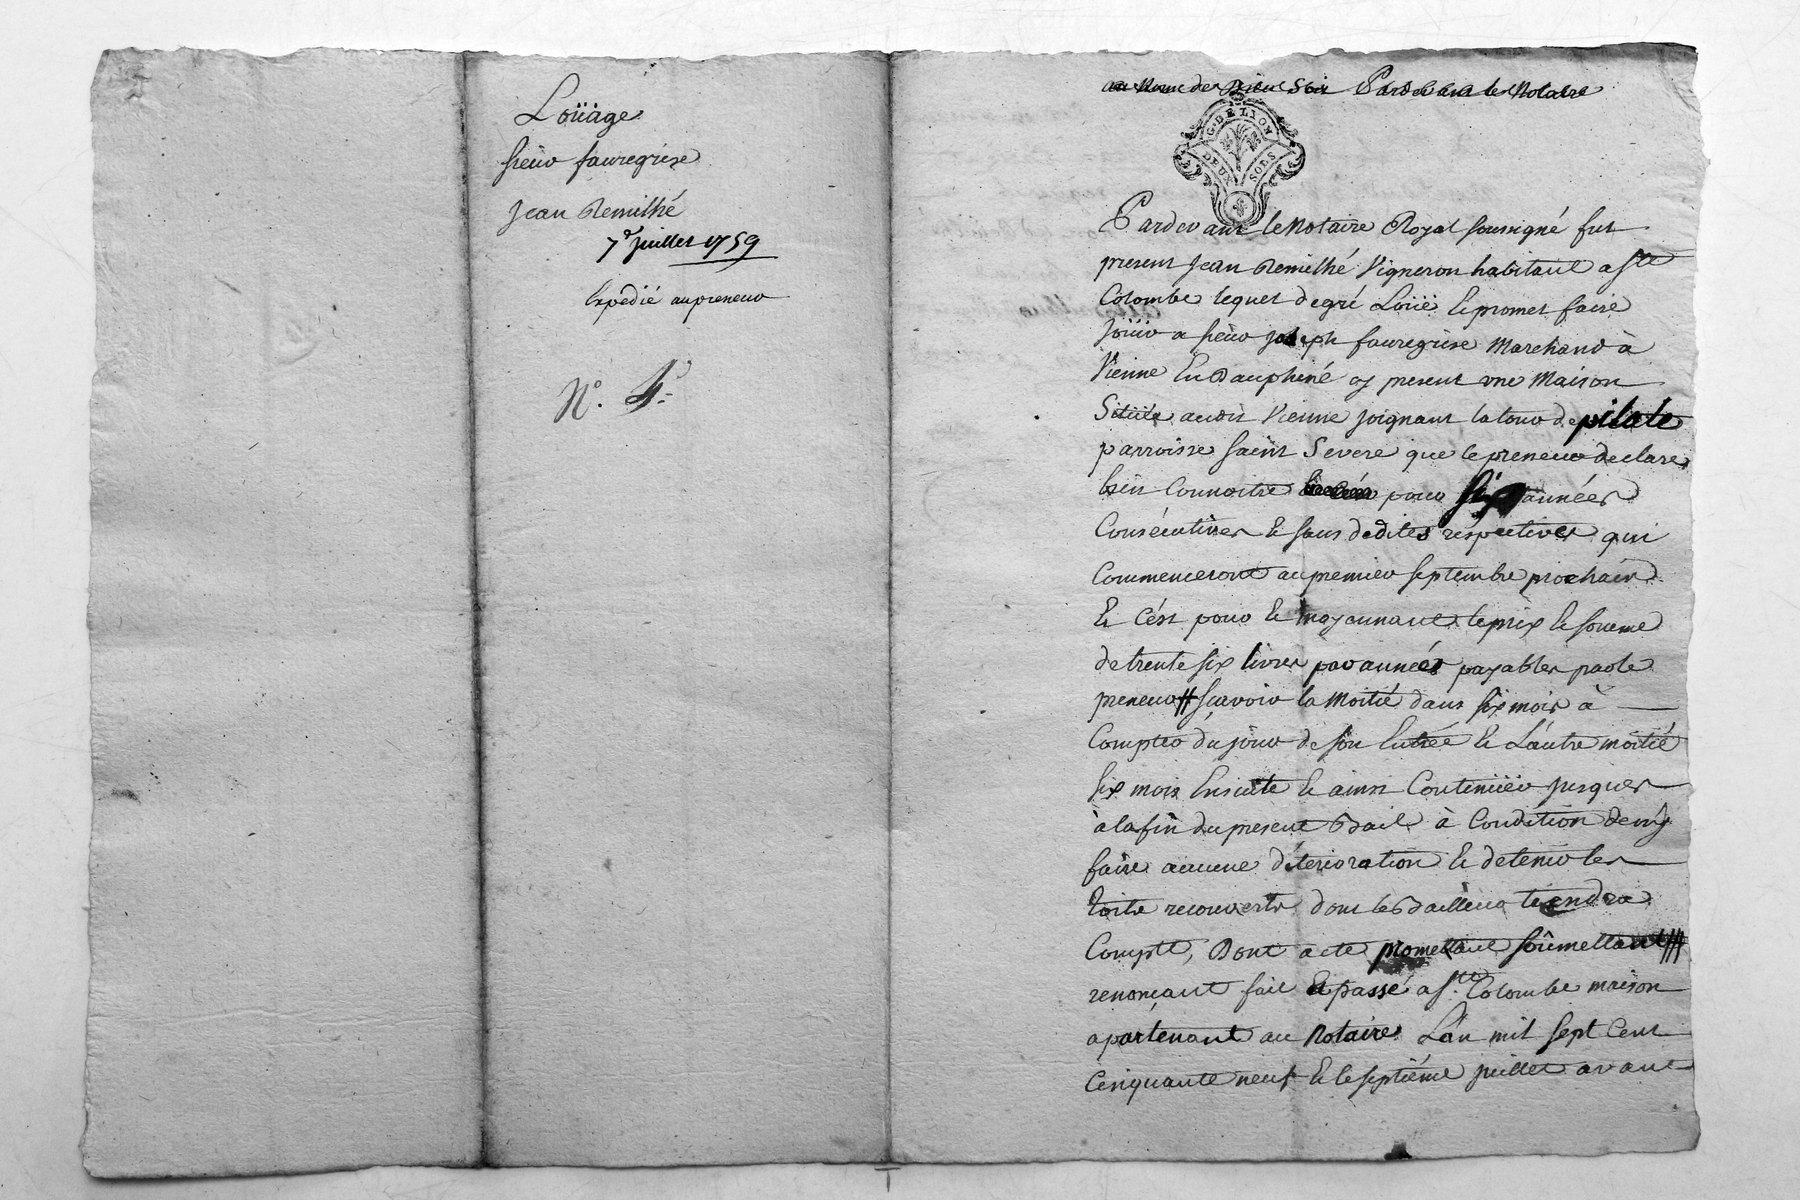 Loüage
sieur fauregrise
Jean Remilhé
7e juillet 1759
Expedié au preneur
N°. 4.
au Nom de Dieu Soit Pardevant le Notaire
G. DE LYON
DEUX SOLS
Pardevant le Notaire Royal soussigné fut
present Jean Remilhé Vigneron habitant a Ste
Colombe lequel de gré Loüe et promet faire
Joüir a sieur Joseph fauregrise Marchand à
Vienne En Dauphiné cy present une Maison
Sitüée audit Vienne joignant la tour de pilate
parroisse saint Severe que le preneur declare
bien Connoitre pour six années
Consécutives et sans dedites réspectives qui
Commenceront au premier septembre prochain
Et C'ést pour et moyennant le prix et somme
de trente six livres par années payables par le
preneur # sçavoir la Moitié dans six mois à
Compter du jour de son Entrée et L'autre moitié
six mois Ensuite et ainsi Contenüer jusques
à la fin du present Bail à Condition de n'y
faire aucune déterioration et de tenir les
toits recouverts dont le Bailleur tiendra
Compte, Dont acte promettant soumettant
renonçant fait et passé a Ste Colombe maison
apartenant au Notaire L'an mil sept Cent
Cinquante neuf et le septiéme juillet avant